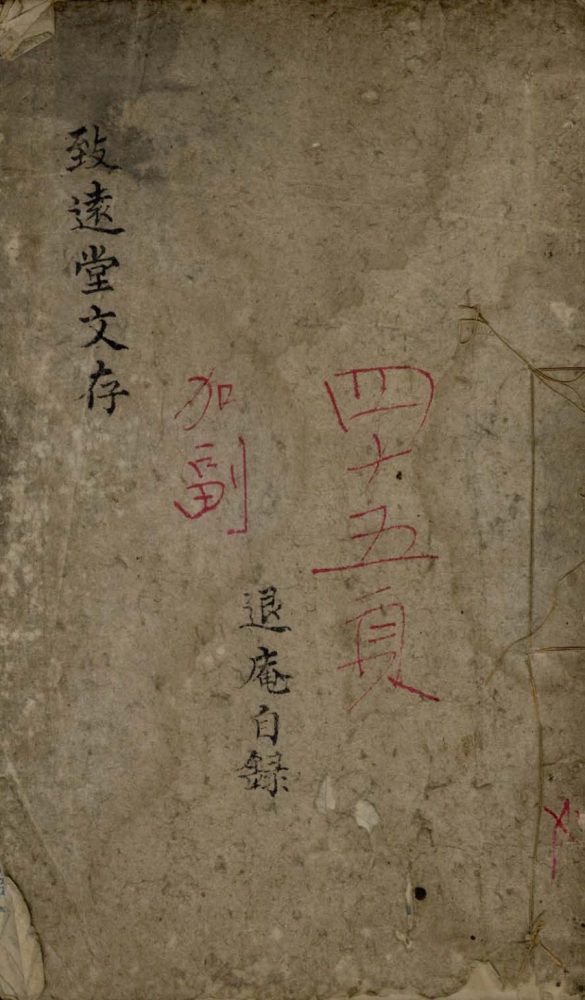 四十五頁
加副
退庵自録
致遠堂文存